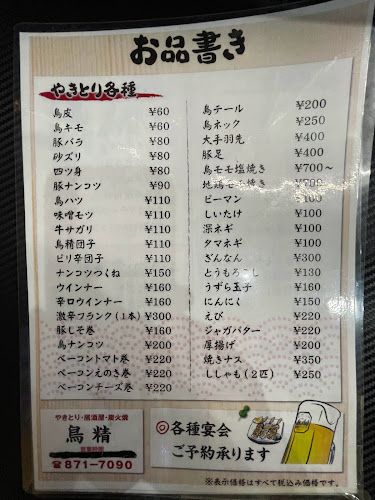 お品書き
やきとり各種
鳥皮 ¥60
鳥キモ ¥60
豚バラ ¥80
砂ズリ ¥80
四ツ身 ¥80
豚ナンコツ ¥90
鳥ハツ ¥110
味噌モツ ¥110
牛サガリ ¥110
鳥精団子 ¥110
ピリ辛団子 ¥110
ナンコツつくね ¥150
ウインナー ¥160
辛口ウインナー ¥160
激辛フランク(1本) ¥300
豚しそ巻 ¥160
鳥ナンコツ ¥200
ベーコントマト巻 ¥220
ベーコンえのき巻 ¥220
ベーコンチーズ巻 ¥220
鳥テール ¥200
鳥ネック ¥250
大手羽先 ¥400
豚足 ¥400
鳥モモ塩焼き ¥700〜
地鶏モモ焼き
ピーマン ¥100
しいたけ ¥100
深ネギ ¥100
タマネギ ¥100
ぎんなん ¥300
とうもろこし ¥130
うずら玉子 ¥160
にんにく ¥150
えび ¥220
ジャガバター ¥220
厚揚げ ¥200
焼きナス ¥350
ししゃも(2匹) ¥250
やきとり・居酒屋・炭火焼
鳥精
営業時間
☎871-7090
◎各種宴会
ご予約承ります
※表示価格はすべて税込み価格です。